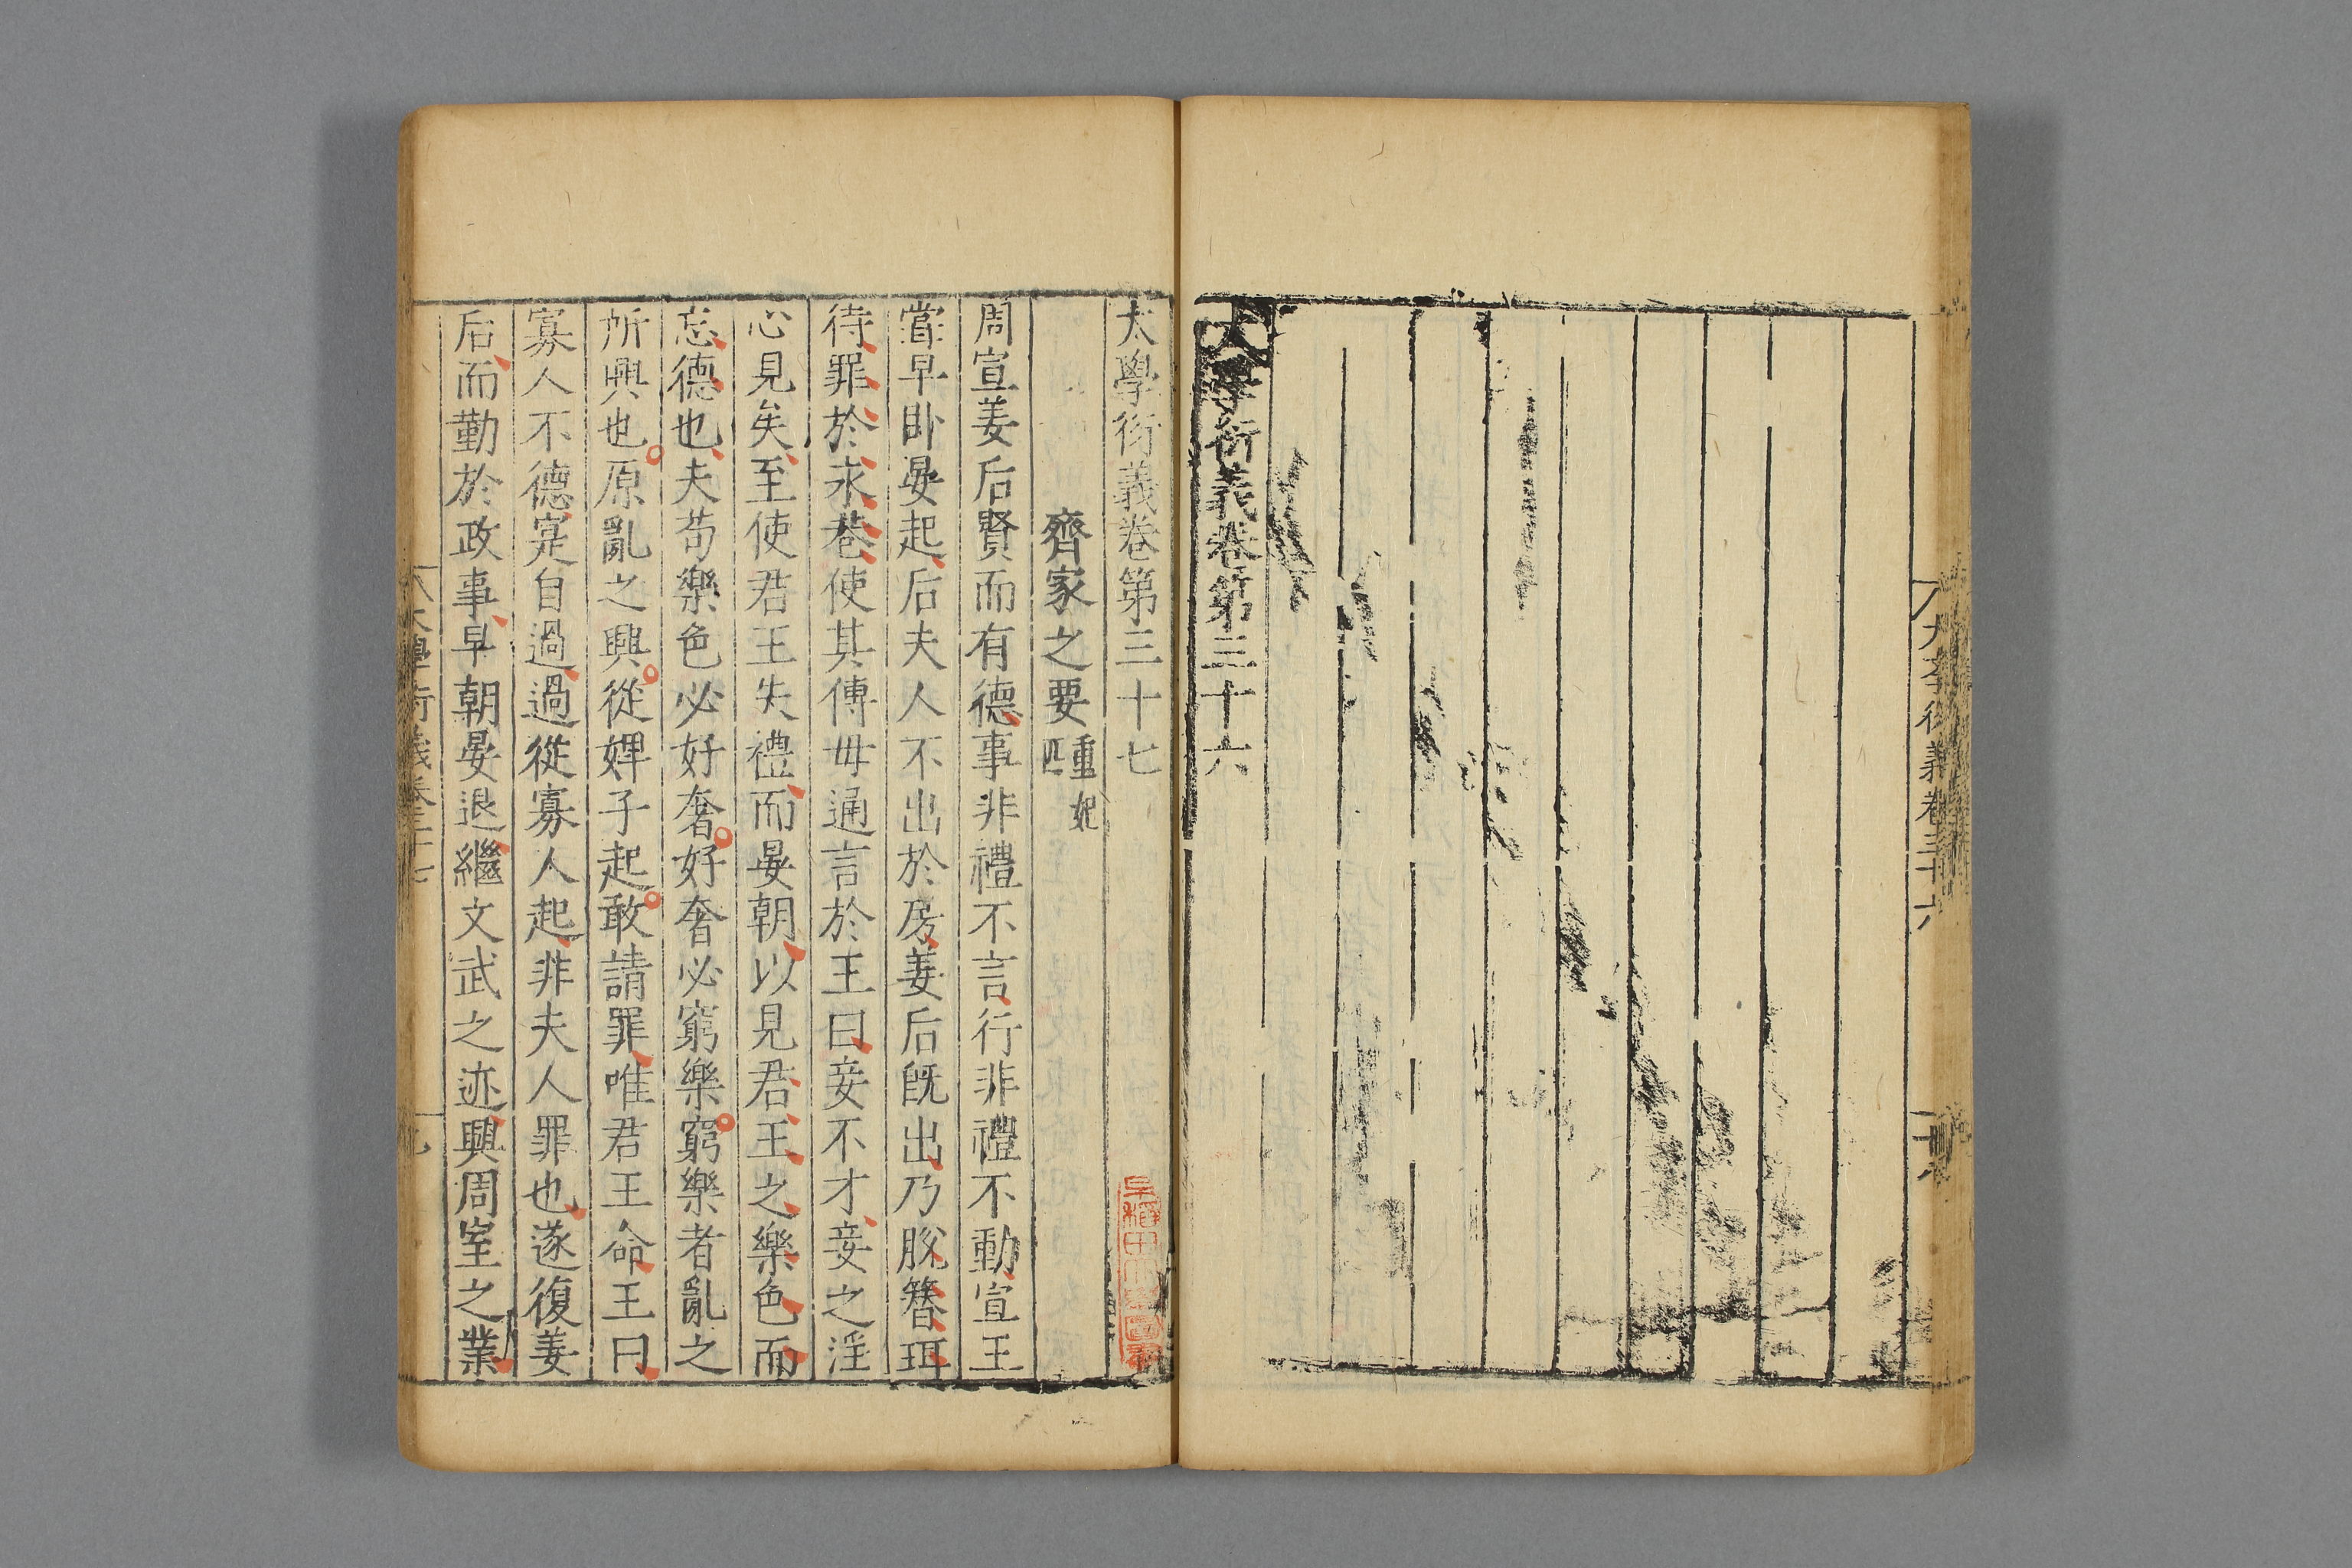 大學衍義卷三十六
大學衍義卷第三十六
大學衍義卷第三十七
齊家之要一重妃匹
周宣姜后賢而有德事非禮不言行非禮不動宣王
嘗早卧晏起后夫人不出於房姜后旣出乃脫簪珥
待罪於永巷使其傅母通言於王曰妾不才妾之淫
心見矣至使君王失禮而晏朝以見君王之樂色而
忘德也夫苟樂色必好奢好奢必窮樂窮樂者亂之
所興也原亂之興從婢子起敢請罪唯君王命王曰
寡人不德寔自過過從寡人起非夫人罪也遂復姜
后而勤於政事早朝晏退繼文武之迹興周室之業
大學衍義卷三十七